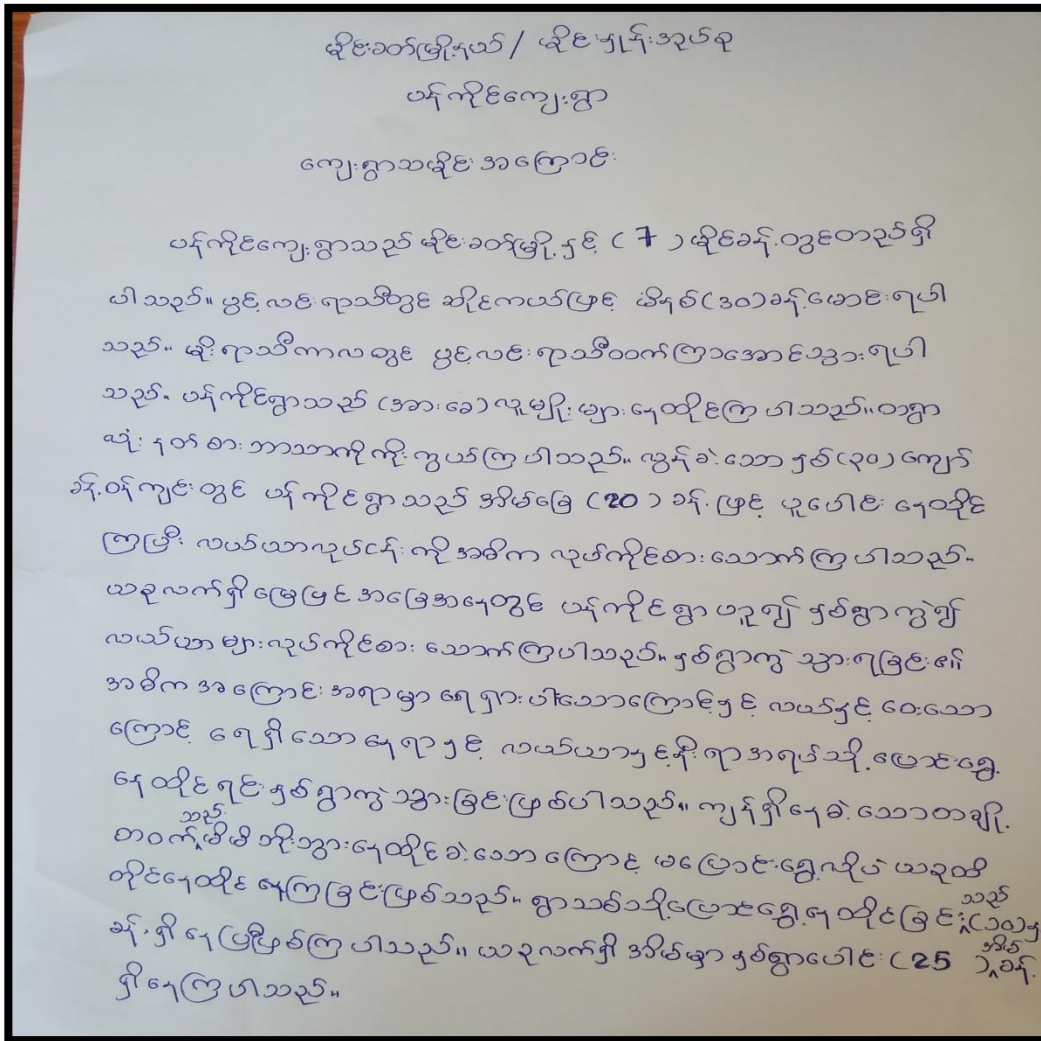 မိုင်းခတ်မြို့နယ် / မိုင်းဂျုန်းအုပ်စု
ပန်ကိုင်ကျေးရွာ
ကျေးရွာသမိုင်းအကြောင်း
ပန်ကိုင်ကျေးရွာသည် မိုင်းခတ်မြို့နှင့် ( 7 ) မိုင်ခန့်တွင်တည်ရှိ
ပါသည်။ ပွင့်လင်းရာသီတွင် ဆိုင်ကယ်ဖြင့် မိနစ်(၃၀)ခန့်မောင်းရပါ
သည်။ မိုးရာသီကာလတွင် ပွင့်လင်းရာသီထက်ကြာအောင်သွားရပါ
သည်။ ပန်ကိုင်ရွာသည် (အားခေ)လူမျိုးများနေထိုင်ကြပါသည်။တရွာ
လုံး နတ်စားဘာသာကိုကိုးကွယ်ကြပါသည်။ လွန်ခဲ့သောနှစ်(၃၀)ကျော်
ခန့်ဝန်းကျင်တွင် ပန်ကိုင်ရွာသည် အိမ်ခြေ (20 ) ခန့်ဖြင့် စုပေါင်းနေထိုင်
ကြပြီး လယ်ယာလုပ်ငန်းကိုအဓိက လုပ်ကိုင်စားသောက်ကြပါသည်။
ယခုလက်ရှိမြေပြင်အခြေအနေတွင် ပန်ကိုင်ရွာဟူ၍ နှစ်ရွာကွဲ၍
လယ်ယာများလုပ်ကိုင်စားသောက်ကြပါသည်။ နှစ်ရွာကွဲသွားရခြင်း၏
အဓိကအကြောင်းအရာမှာ ရေရှားပါးသောကြောင့်နှင့် လယ်နှင့်ဝေးသော
ကြောင့် ရေရှိသောနေရာနှင့် လယ်ယာနှင့်နီးရာအရပ်သို့ပြောင်းရွှေ့
နေထိုင်ရင်းနှစ်ရွာကွဲသွားခြင်းဖြစ်ပါသည်။ ကျန်ရှိနေခဲ့သောတချို့
တဝက်သည် မိမိဘိုးဘွားနေထိုင်ခဲ့သောကြောင့် မပြောင်းရွှေ့လိုပဲ ယခုထိ
တိုင်နေထိုင်နေကြခြင်းဖြစ်သည်။ ရွာသစ်သို့ပြောင်းရွှေ့နေထိုင်ခြင်းသည်(၁၀)နှ
ခန့်ရှိနေပြီဖြစ်ကြပါသည်။ ယခုလက်ရှိ အိမ်မှာနှစ်ရွာပေါင်း (25 )အိမ်ခန့်
ရှိနေကြပါသည်။